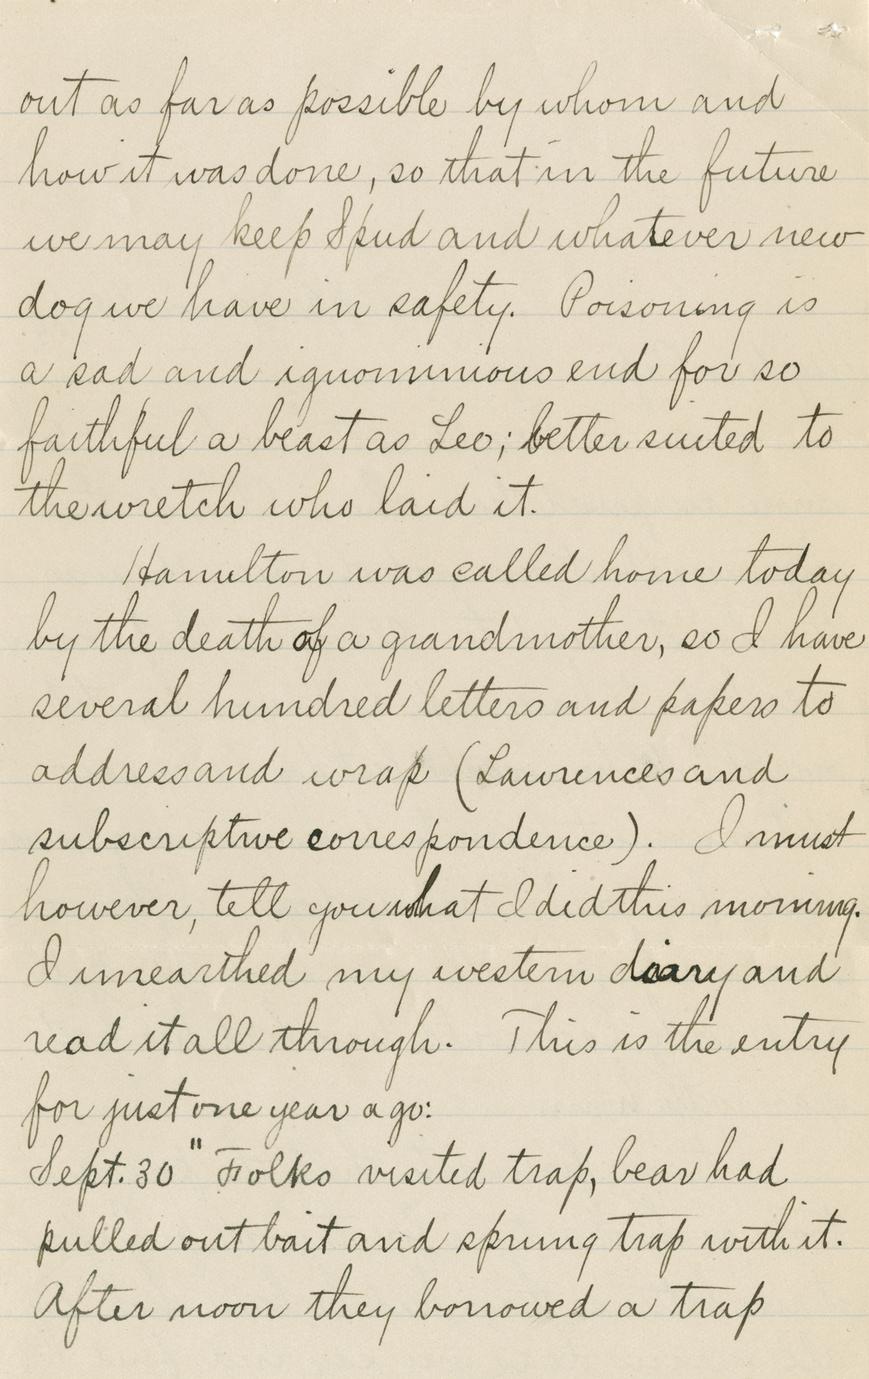 out as far as possible by whom and
how it was done, so that in the future
we may keep Spud and whatever new
dog we have in safety. Poisoning is
a sad and ignominious end for so
faithful a beast as Leo; better suited to
the wretch who laid it.
Hamilton was called home today
by the death of a grandmother, so I have
several hundred letters and papers to
address and wrap (Lawrences and
subscriptive correspondence). I must
however, tell you what I did this morning.
I unearthed my western diary and
read it all through. This is the entry
for just one year ago:
Sept. 30 " Folks visited trap, bear had
pulled out bait and sprung trap with it.
After noon they borrowed a trap